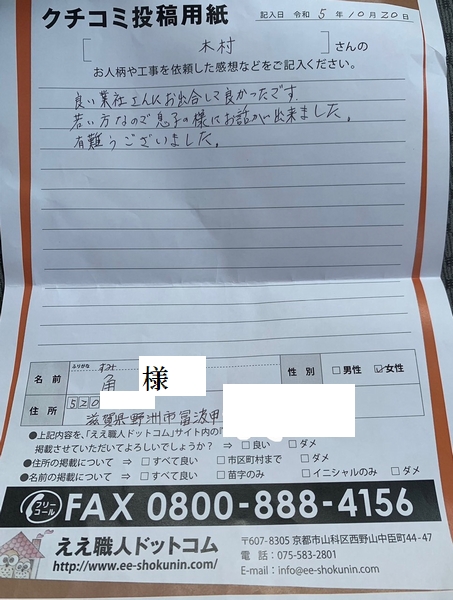 クチコミ投稿用紙
記入日 令和 5 年 10 月 20 日
木村 さんの
お人柄や工事を依頼した感想などをご記入ください。
良い業社さんにお出合して良かったです。
若い方なので息子の様にお話が出来ました。
有難うございました。
ふりがな すみ
名前 角 様
性別 □男性 ☑女性
住所 520
滋賀県野洲市冨波甲
●上記内容を、「ええ職人ドットコム」サイト内の「
掲載させていただいてよろしいでしょうか? ⇒ □良い □ダメ
●住所の掲載について ⇒ □すべて良い □市区町村まで □ダメ
●名前の掲載について ⇒ □すべて良い □苗字のみ □イニシャルのみ □ダメ
フリーコール FAX 0800-888-4156
ええ職人ドットコム
http://www.ee-shokunin.com/
〒607-8305 京都市山科区西野山中臣町44-47
電話:075-583-2801
E-mail:info@ee-shokunin.com